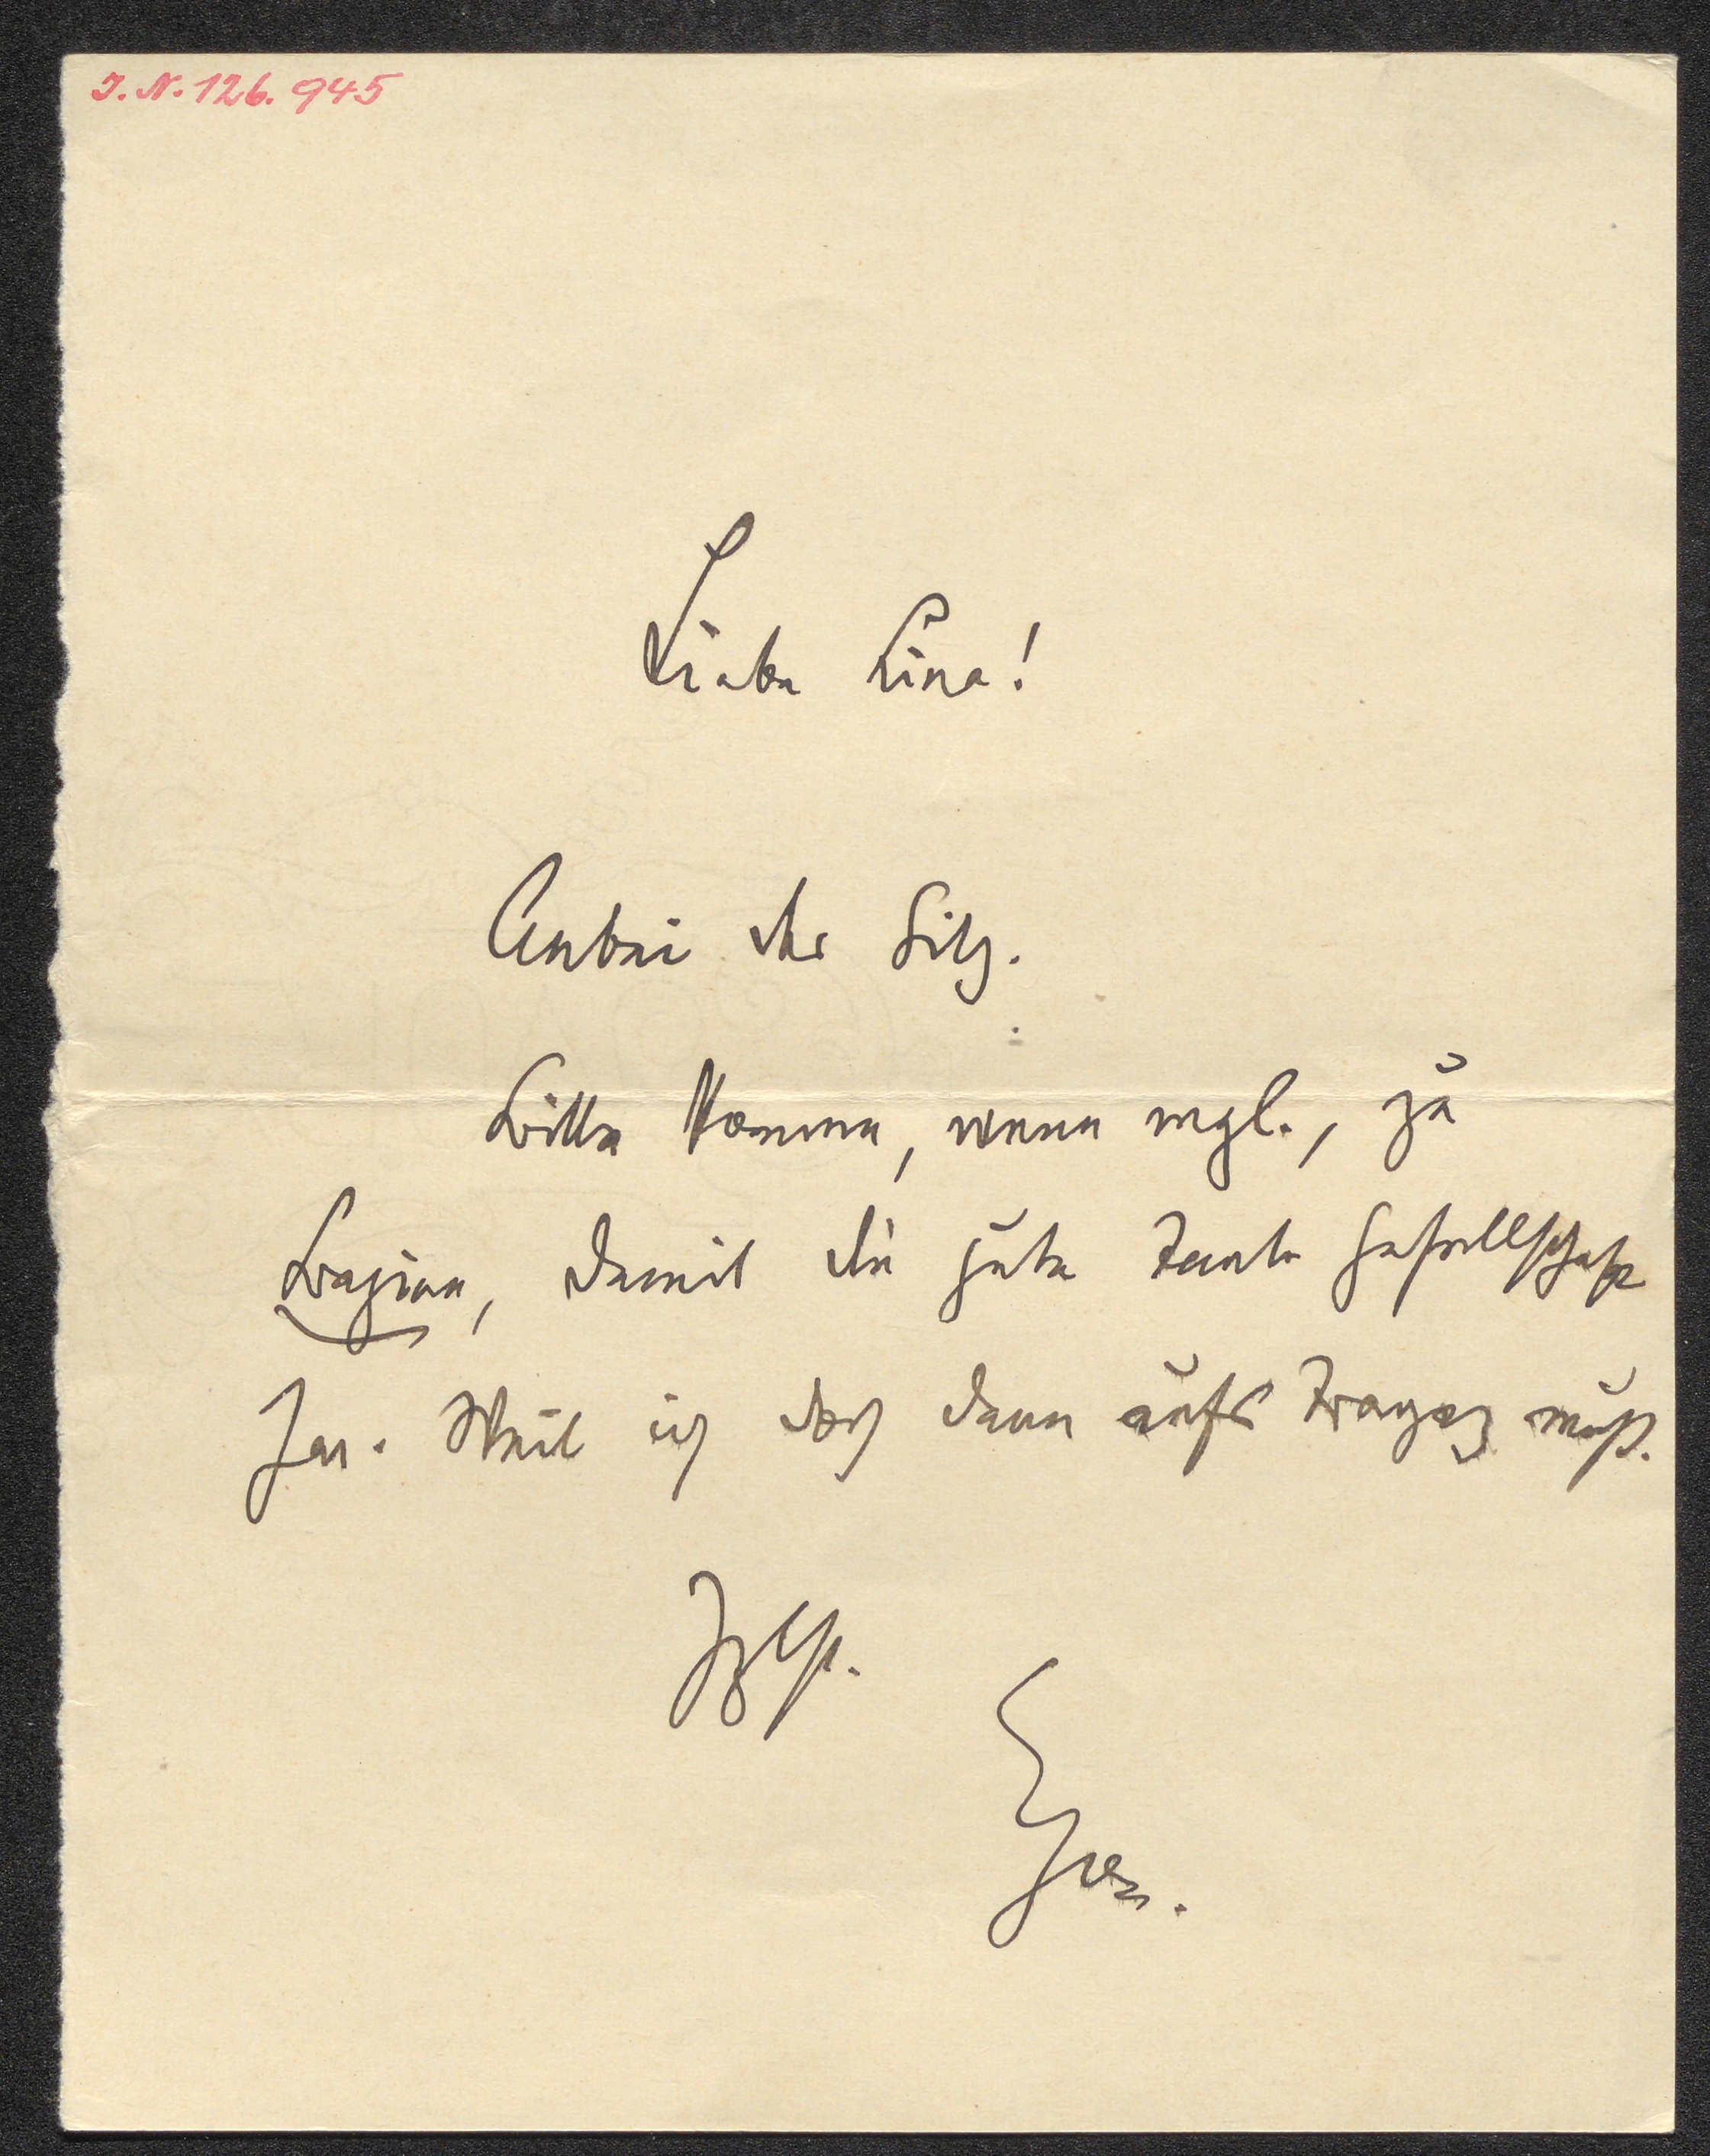 I. N. 126.945
Liebe Lina!
Anbei der Sitz.
Bitte komme, wenn mgl., zu
Beginn, damit die gute Tante Gesellschaft
hat. Weil ich doch dann aufs muß.
Hzlst.